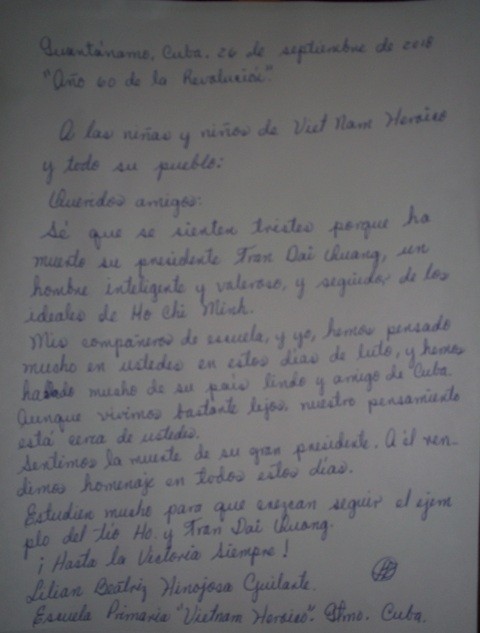 Guantánamo, Cuba. 26 de septiembre de 2018
"Año 60 de la Revolución".
A las niñas y niños de Viet Nam Heroico
y todo su pueblo:
Queridos amigos:
Sé que se sienten tristes porque ha
muerto su presidente Tran Dai Quang, un
hombre inteligente y valeroso, y seguidor de los
ideales de Ho Chi Minh.
Mis compañeros de escuela, y yo, hemos pensado
mucho en ustedes en estos días de luto, y hemos
hablado mucho de su país lindo y amigo de Cuba.
Aunque vivimos bastante lejos, nuestro pensamiento
está cerca de ustedes.
Sentimos la muerte de su gran presidente. A él ren-
dimos homenaje en todos estos días.
Estudien mucho para que crezcan seguir el ejem
plo del tío Ho. y Tran Dai Quang.
¡Hasta la Victoria Siempre!
Lilian Beatriz Hinojosa Guilarte.
Escuela Primaria "Vietnam Heroico". Gtmo. Cuba.